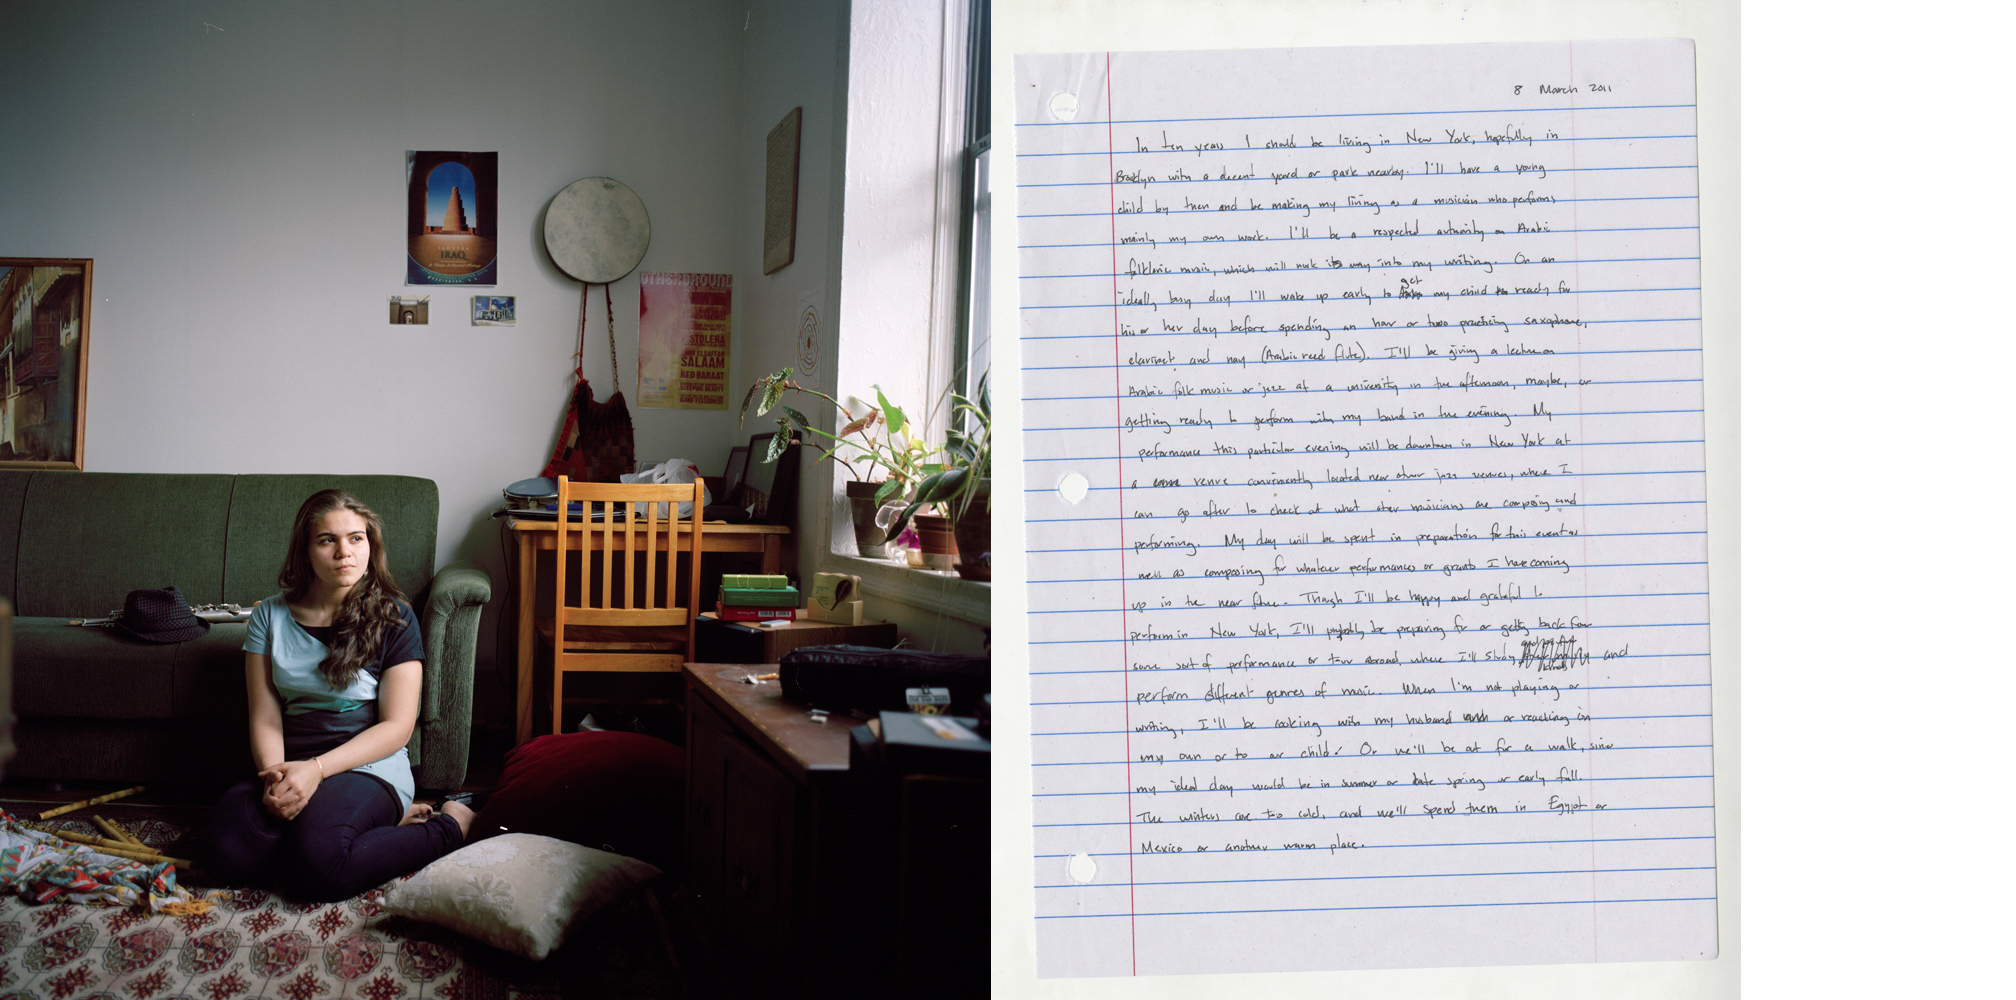 IRAQ
OTHERGROUND
STOLERA
AMIR ELSAFFAR
SALAAM
RED BARAAT
8 March 2011
In ten years I should be living in New York, hopefully in
Brooklyn with a decent yard or park nearby. I'll have a young
child by then and be making my living as a musician who performs
mainly my own work. I'll be a respected authority on Arabic
folkloric music, which will work its way into my writing. On an
ideally busy day I'll wake up early to get my child ready for
his or her day before spending an hour or two practicing saxophone,
clarinet and nay (Arabic reed flute). I'll be giving a lecture on
Arabic folk music or jazz at a university in the afternoon, maybe, or
getting ready to perform with my band in the evening. My
performance this particular evening will be downtown in New York at
a venue conveniently located near other jazz venues, where I
can go after to check out what other musicians are composing and
performing. My day will be spent in preparation for this event as
well as composing for whatever performances or grants I have coming
up in the near future. Though I'll be happy and grateful to
perform in New York, I'll probably be preparing for or getting back from
some sort of performance or tour abroad, where I'll study and
perform different genres of music. When I'm not playing or
writing, I'll be cooking with my husband or reading on
my own or to our child. Or we'll be out for a walk, since
my ideal day would be in summer or late spring or early fall.
The winters are too cold, and we'll spend them in Egypt or
Mexico or another warm place.